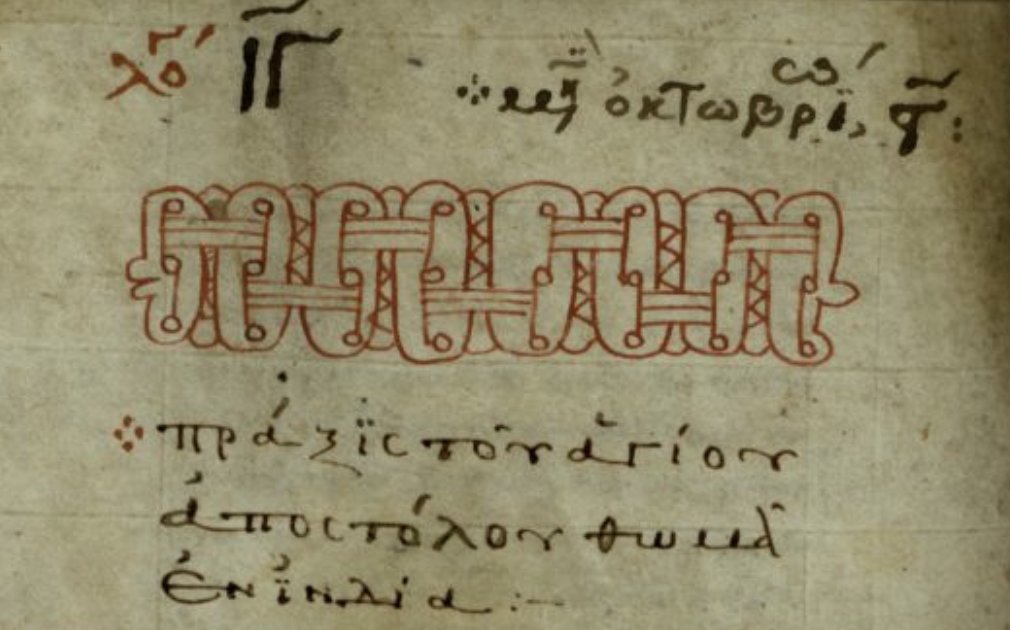 λό ΙΓ ⁘ μη ὀκτωβρΐω, ϛ:
⁘ πράξϊς τοῦ ἁγίου
ἀποστόλου θωμᾶ
ἐν ἰνδία :–